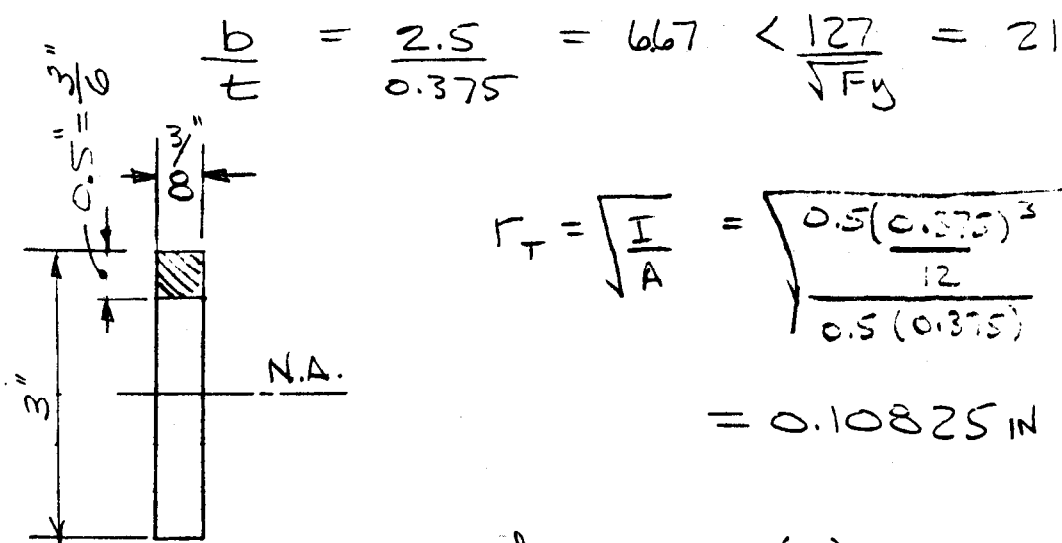 b/t = 2.5/0.375 = 6.67 < 127/√Fy = 21
0.5" = 3"/6
3/8"
r_T = √(I/A) = √((0.5(0.375)³/12)/(0.5(0.375)))
3"
N.A.
= 0.10825 IN